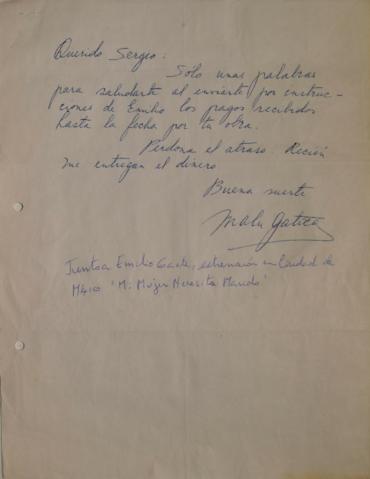 Querido Sergio:
Sólo unas palabras
para saludarte al enviarte por instruc-
ciones de Emilio los pagos recibidos
hasta la fecha por tu obra.
Perdona el atraso. Recién
me entregan el dinero.
Buena suerte
Malu Gatica
Junto a Emilio Gaete, estrenaron en Ciudad de
"Mi Mujer Necesita Marido"